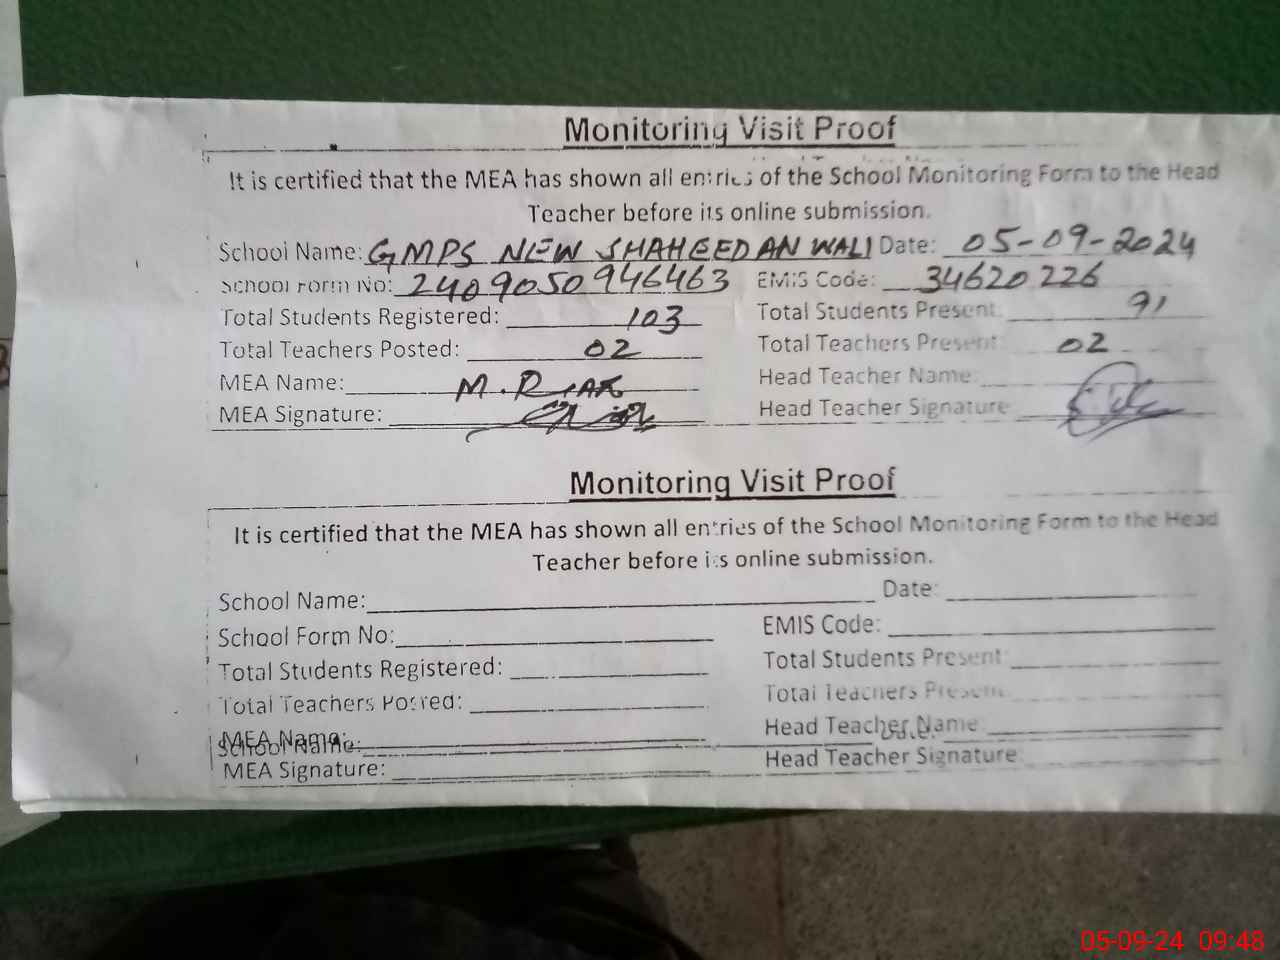 Monitoring Visit Proof
It is certified that the MEA has shown all entries of the School Monitoring Form to the Head
Teacher before its online submission.
School Name: GMPS NEW SHAHEEDAN WALI Date: 05-09-2024
School Form No: 2409050946463 EMIS Code: 34620226
Total Students Registered: 103 Total Students Present: 91
Total Teachers Posted: 02 Total Teachers Present: 02
MEA Name: M. Head Teacher Name:
MEA Signature: Head Teacher Signature
Monitoring Visit Proof
It is certified that the MEA has shown all entries of the School Monitoring Form to the Head
Teacher before its online submission.
School Name: Date:
School Form No: EMIS Code:
Total Students Registered: Total Students Present:
Total Teachers Posted: Total Teachers Present:
MEA Name: Head Teacher Name:
School Name:
MEA Signature: Head Teacher Signature:
05-09-24 09:48